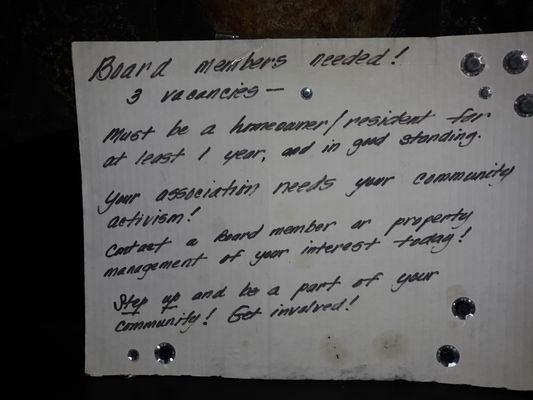 Board members needed!
3 vacancies —
Must be a homeowner/resident for
at least 1 year, and in good standing.
Your association needs your community
activism!
Contact a Board member or property
management of your interest today!
Step up and be a part of your
community! Get involved!